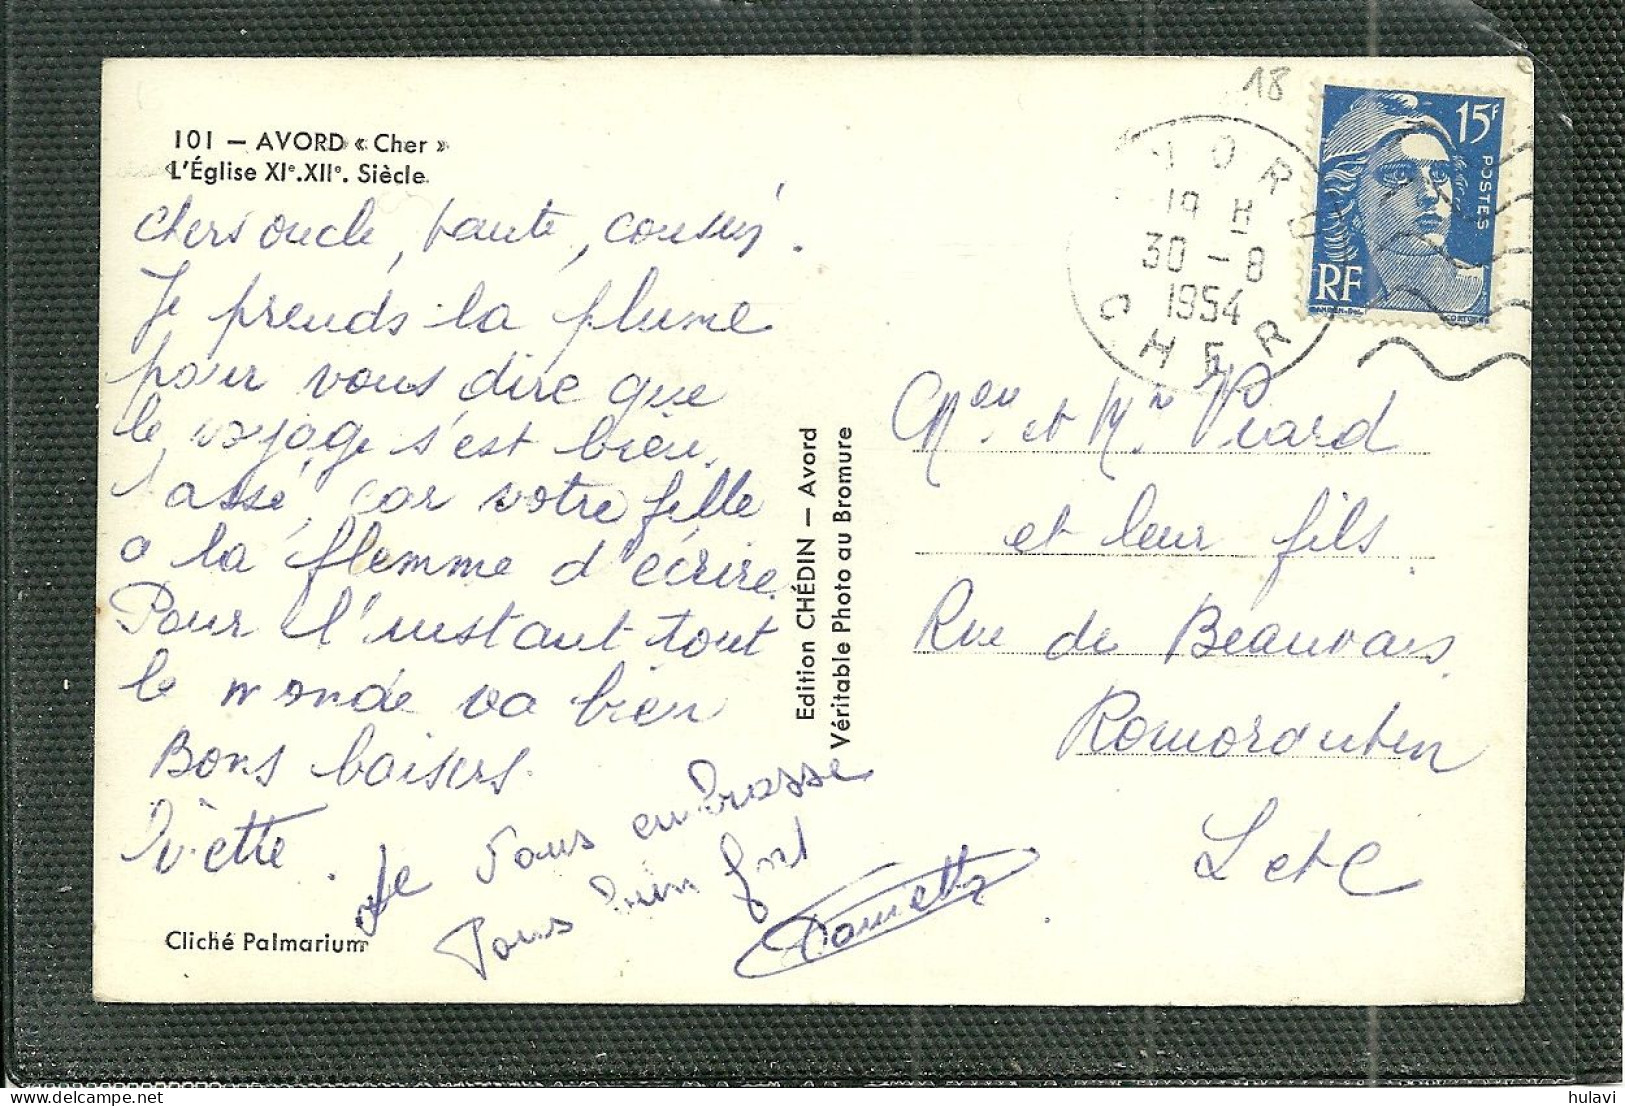 101 – AVORD « Cher »
L'Église XIe.XIIe. Siècle
chers oncle, tante, cousin.
Je prends la plume
pour vous dire que
le voyage s'est bien
passé, car votre fille
a la flemme d'écrire.
Pour l'instant tout
le monde va bien
Bons baisers
Yvette.
Je vous embrasse
tous bien fort
Cliché Palmarium
Edition CHÉDIN — Avord
Véritable Photo au Bromure
18
AVORD
19 H
30 - 8
1954
CHER
15F
POSTES
RF
et Mr Piard
et leur fils
Rue de Beauvais
Romorantin
L et C
hulavi